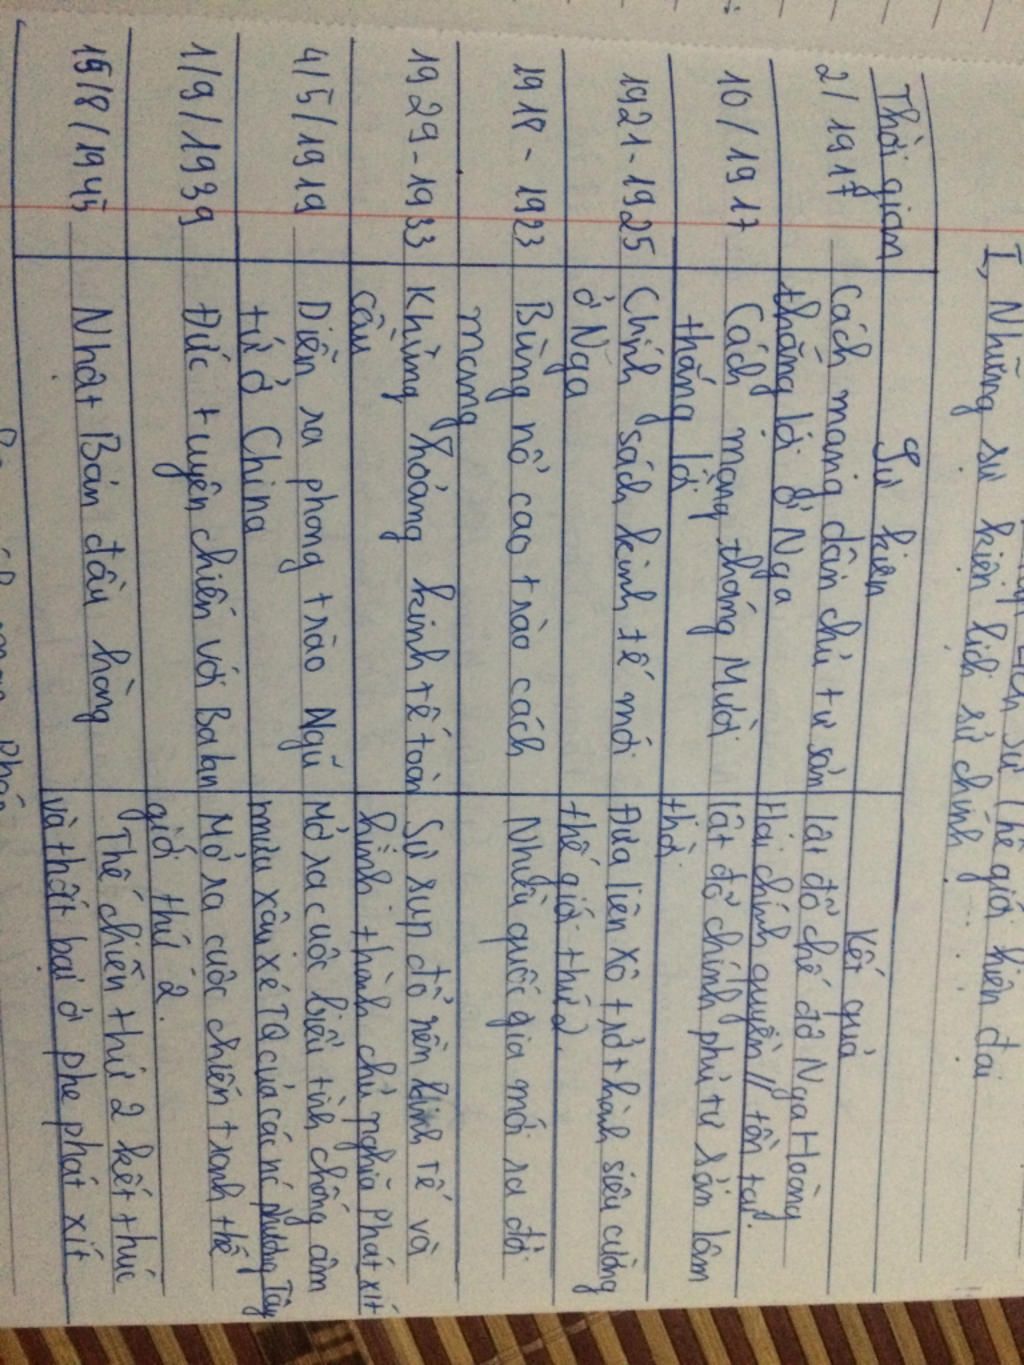 Lịch sử thế giới hiện đại
I, Những sự kiện lịch sử chính
Thời gian | Sự kiện | Kết quả
2/1917 | Cách mạng dân chủ tư sản | lật đổ chế độ Nga Hoàng
thắng lợi ở Nga | Hai chính quyền // tồn tại.
10/1917 | Cách mạng tháng Mười | lật đổ chính phủ tư sản lâm
thắng lợi | thời.
1921-1925 | Chính sách kinh tế mới | Đưa liên xô trở thành siêu cường
ở Nga | thế giới thứ 2.
1918-1923 | Bùng nổ cao trào cách | Nhiều quốc gia mới ra đời
mạng
1929-1933 | Khủng hoảng kinh tế toàn | Sự sụp đổ nền kinh tế và
cầu | hình thành chủ nghĩa phát xít
4/5/1919 | Diễn ra phong trào Ngũ | Mở ra cuộc biểu tình chống âm
tứ ở China | mưu xâu xé TQ của các nc phương Tây
1/9/1939 | Đức tuyên chiến với Balan | Mở ra cuộc chiến tranh thế
giới thứ 2.
15/8/1945 | Nhật Bản đầu hàng | Thế chiến thứ 2 kết thúc
và thất bại ở phe phát xít